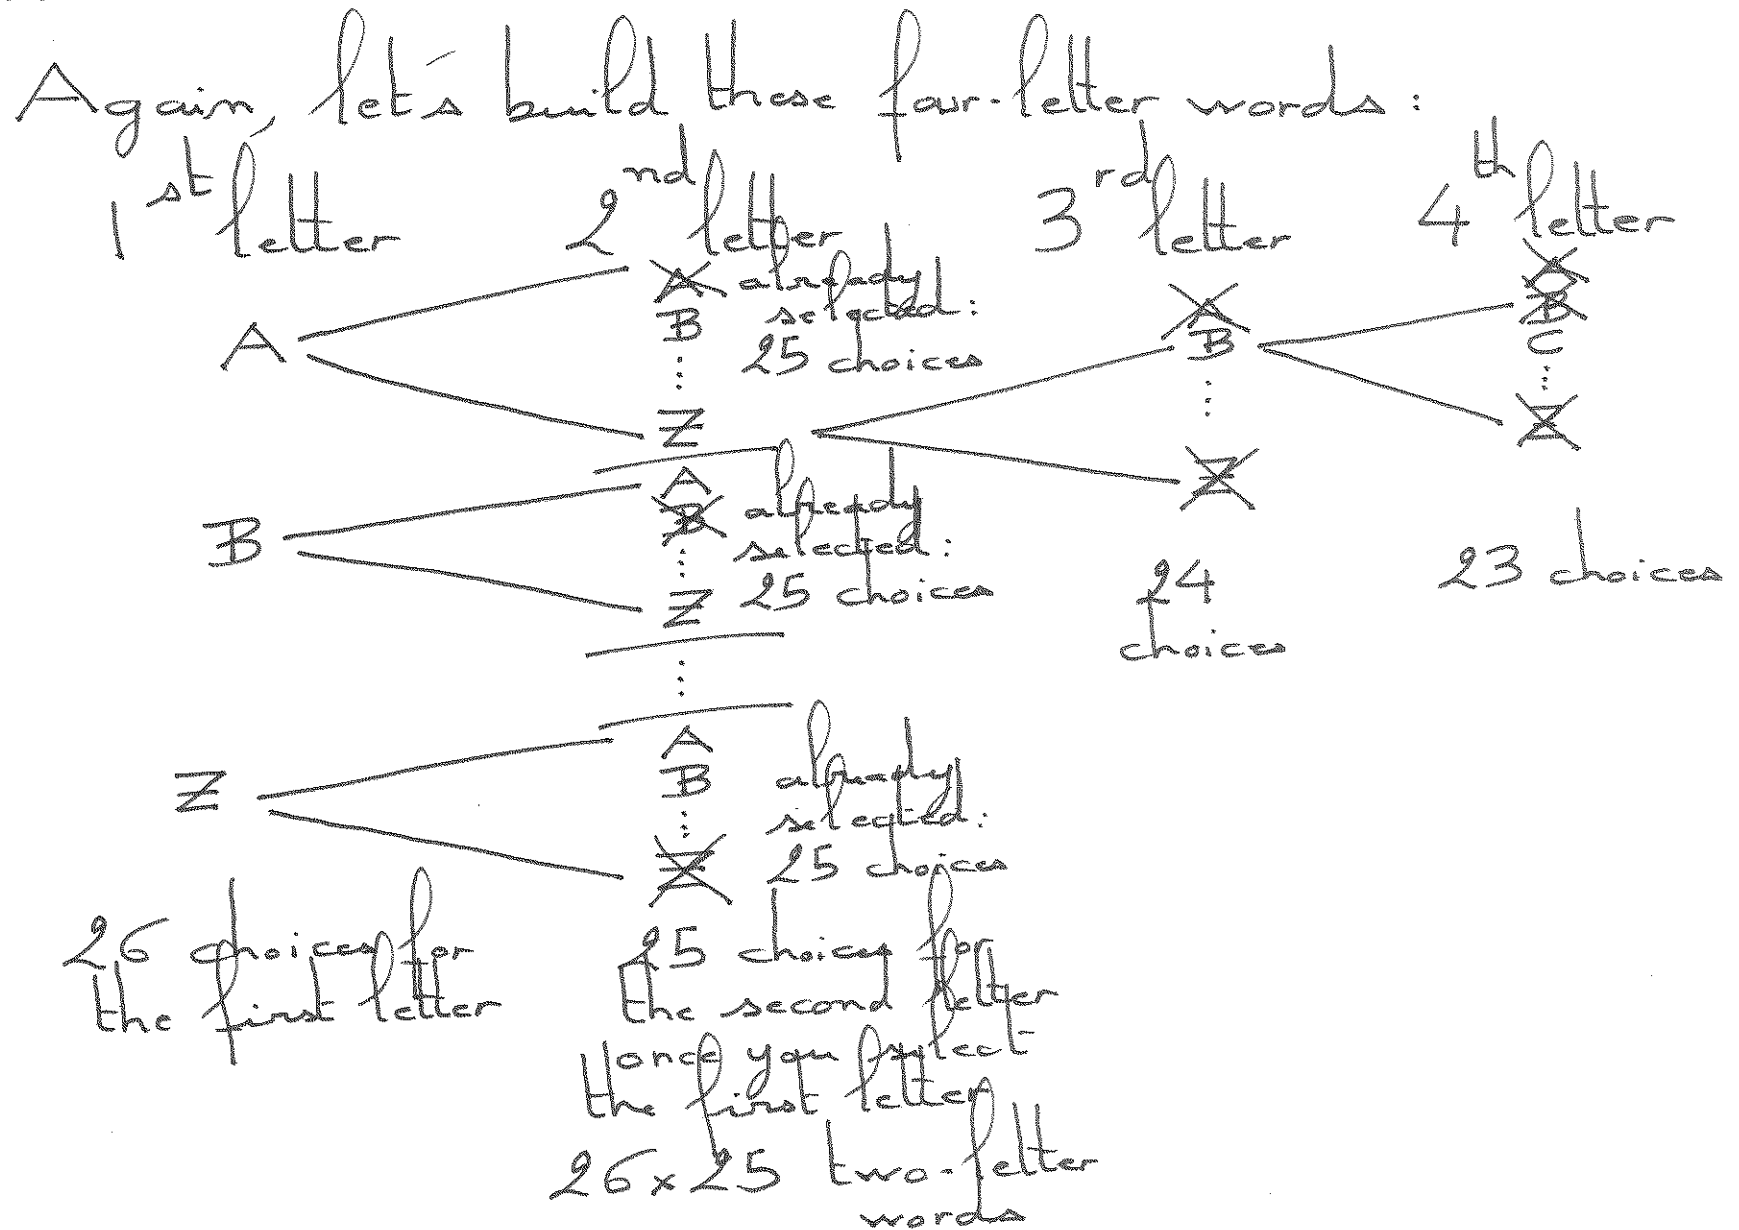 Again, let's build these four-letter words:
1st letter 2nd letter 3rd letter 4th letter
A
A already
selected:
B
25 choices
Z
A
B
Z
A
B
C
Z
B
A
B already
selected:
25 choices
Z
24
choices
23 choices
Z
A
B already
selected:
Z 25 choices
26 choices for
the first letter
25 choices for
the second letter
once you select
the first letter
26 x 25 two-letter
words